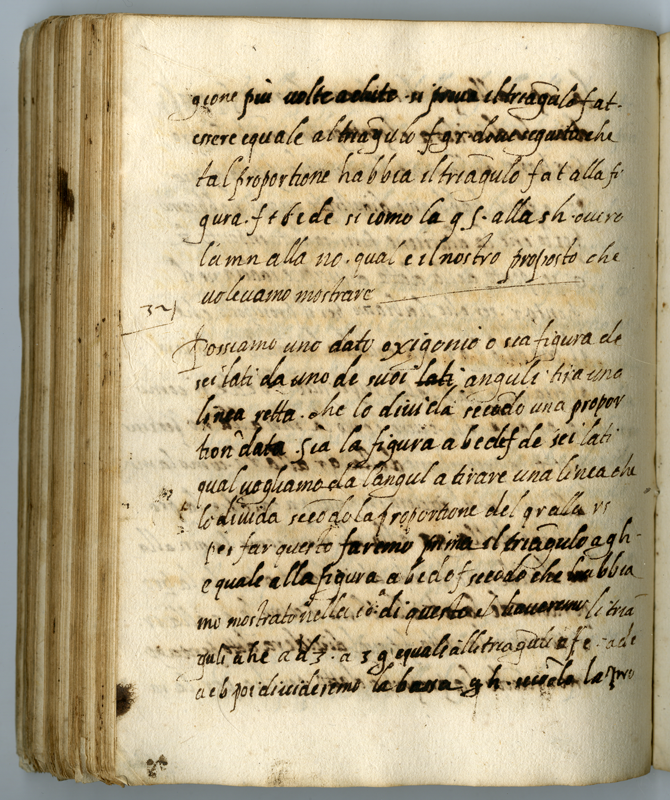 gione più volte a dite si prova il triãgulo f a t
essere equale al triãgulo f g r dove seguita che
tal proportione habbia il triãgulo f a t alla fi
gura f e b c d e si como la q s alla s h overo
la m n alla n o qual e il nostro proposto che
volevamo mostrare
32
Possiamo uno dato oxigonio o sia figura de
sei lati da uno de suoi lati anguli tira una
linea retta che lo divida secõdo una propor
tion data Sia la figura a b c d e f de sei lati
qual vogliamo da l angul a tirare una linea che
lo divida secõdo la proportione del q r alla r s
per far questo faremo prima il triãgulo a g h
equale alla figura a b c d e f secõdo che habbia
mo mostrato nella 10ª di questo et haveremo li triã
guli a h e a d 3 a 3 g equali alli triãguli a f e a d e
a c b poi divideremo la basa g h secõdo la pro